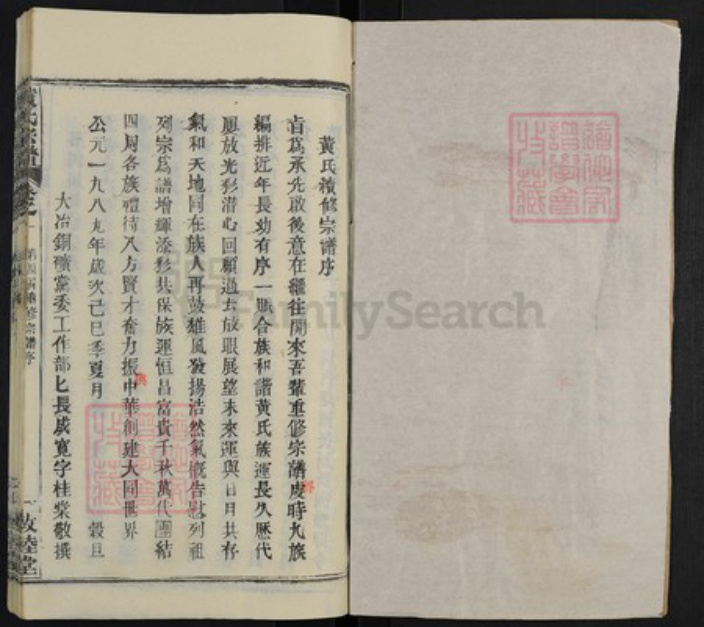 黃氏續修宗譜序
旨為承先啟後意在繼往開來吾輩重修宗譜處時九族
編排近年長幼有序一賬合族和諧黃氏族運長久歷代
愿放光彩潛心回顧過去放眼展望未來運與日月共存
氣和天地同在族人再鼓雄風發揚浩然氣概告慰列祖
列宗為譜增輝添彩共保族運恒昌富貴千秋萬代團結
四周各族禮待八方賢才奮力振中華創建大同世界
公元一九八九年歲次己巳季夏月 穀旦
大冶銅礦黨委工作部 長成寬字桂榮敬撰
黃氏宗譜
卷之一
續修宗譜序
一
敦睦堂
FamilySearch